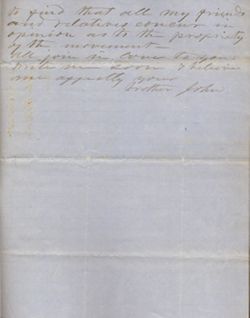 to find that all my friends
and relatives concur in
opinion as to the propriety
of the movement
in love to you
me soon & believe
me affectly yours
brother John